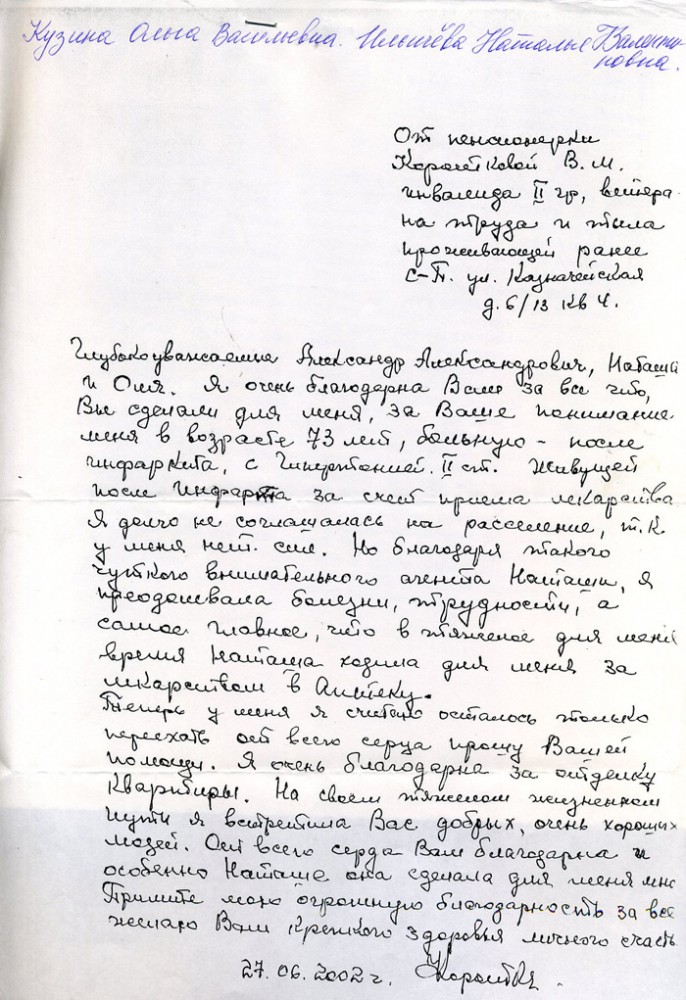 Кузина Ольга Васильевна. Ильичёва Наталья Валенти
новна.
От пенсионерки
Коротковой В. М.
инвалида II гр, ветера
на труда и тыла
проживающей ранее
С-П. ул. Казначейская
д. 6/13 кв 4.
Глубокоуважаемые Александр Александрович, Наташа
и Оля. Я очень благодарна Вам за все что,
Вы сделали для меня, за Ваше понимание
меня в возрасте 73 лет, больную - после
инфаркта, с Гипертонией. II ст. Живущей
после Инфаркта за счет приема лекарства
Я долго не соглашалась на расселение, т.к.
у меня нет. сил. Но благодаря такого
чуткого внимательного агента Наташи, я
преодолевала болезни, трудности, а
самое главное, что в тяжелое для меня
время Наташа ходила для меня за
лекарством в Аптеку.
Теперь у меня я считаю осталось только
переехать от всего серца прошу Вашей
помощи. Я очень благодарна за отделку
Квартиры. На своем тяжелом жизненном
пути я встретила Вас добрых, очень хороших
людей. От всего серда Вам благодарна и
особенно Наташе она сделала для меня мно
Примите мою огромную благодарность за все
желаю Вам крепкого здоровья личного счасть
27.06.2002 г.